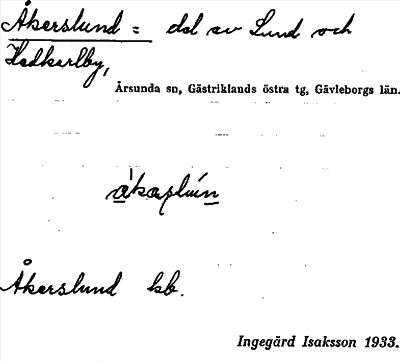 Åkerslund = del av Lund och
Hedkarlby,
Årsunda sn, Gästriklands östra tg, Gävleborgs län.
Åkerslund kb.
Ingegärd Isaksson 1933.